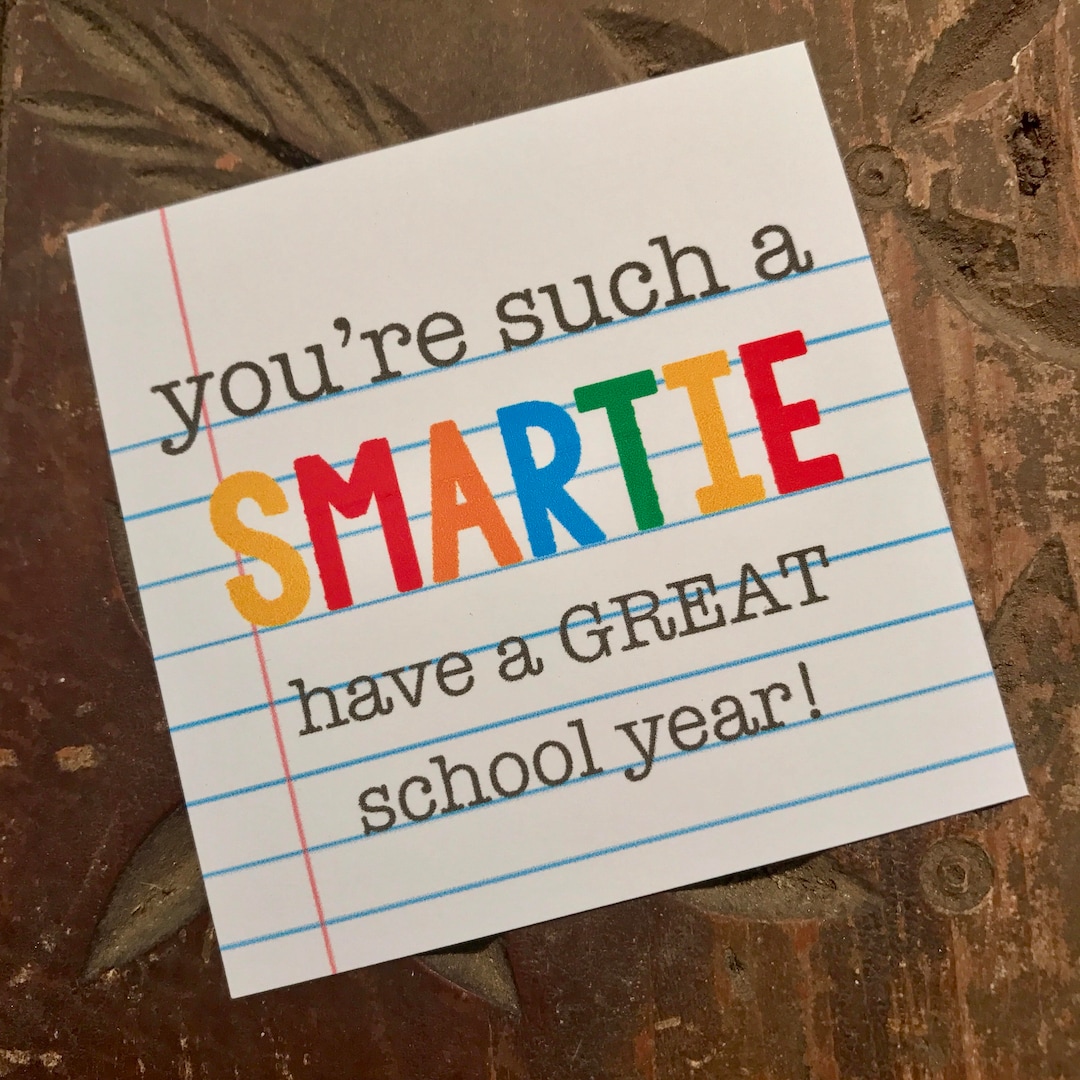 you're such a
SMARTIE
have a GREAT
school year!